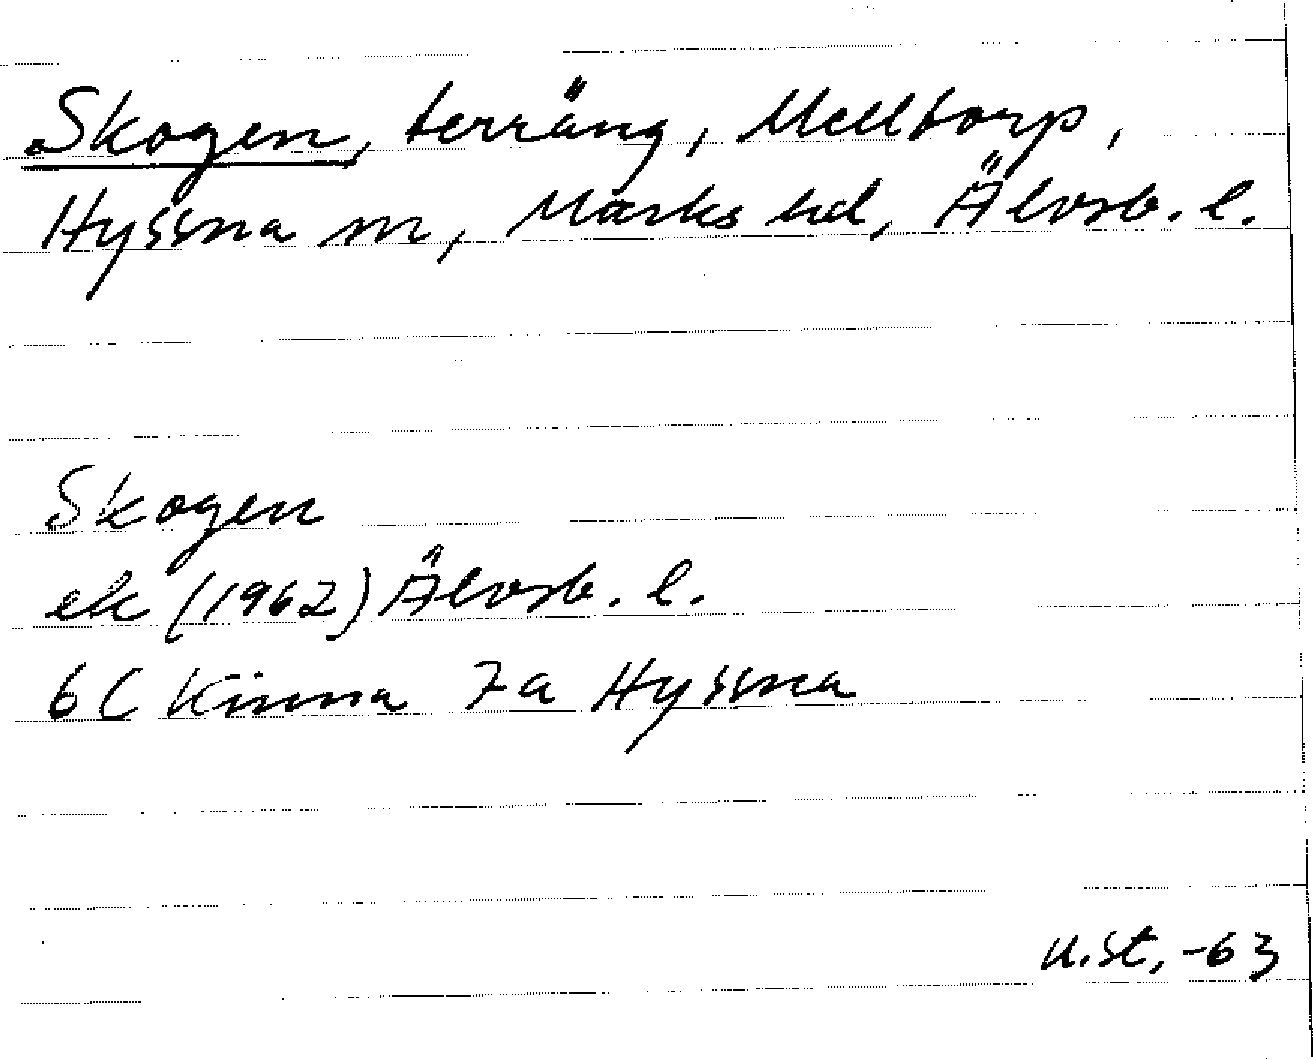 Skogen, terräng, Melltorp,
Hyssna sn, Marks hd, Älvsb. l.
Skogen
ek (1962) Älvsb. l.
6C Kinna 7a Hyssna
u.st, -63